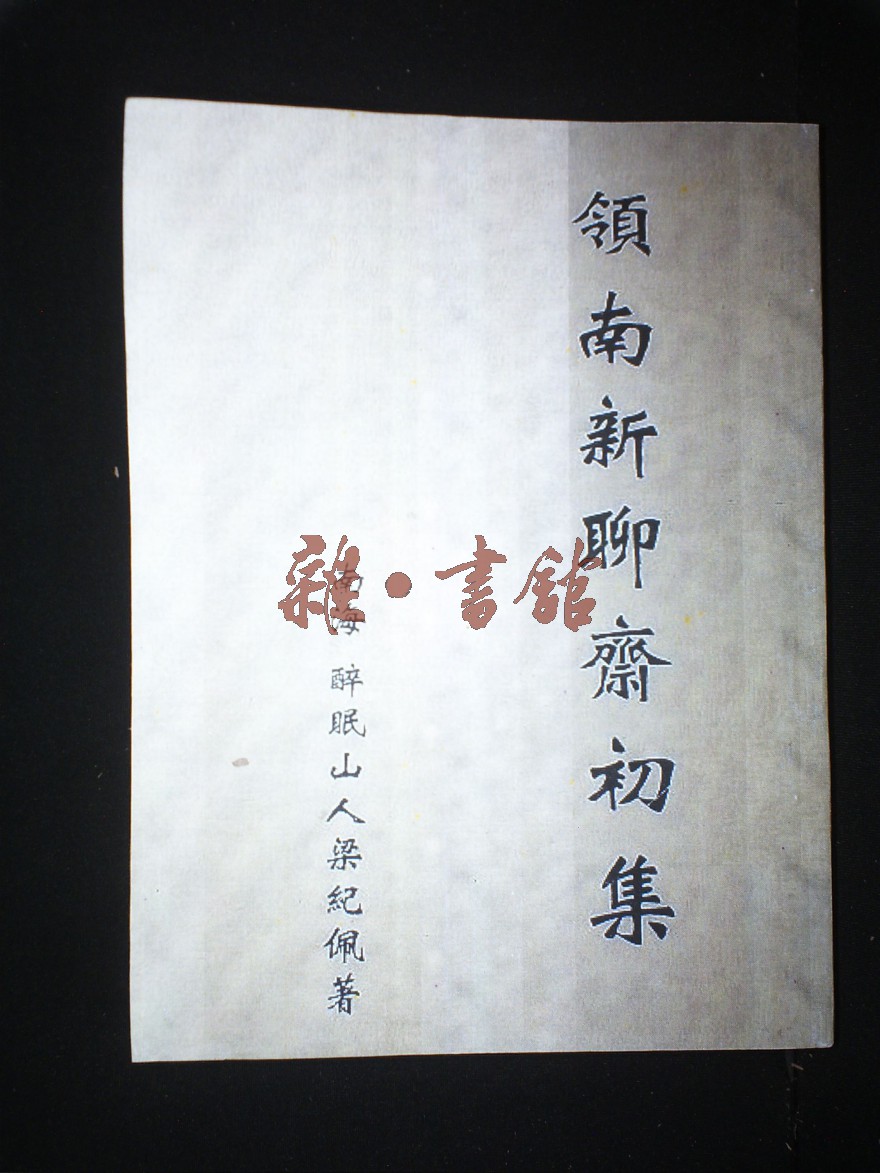 領南新聊齋初集
南海 醉眠山人梁紀佩著
雜·書舘